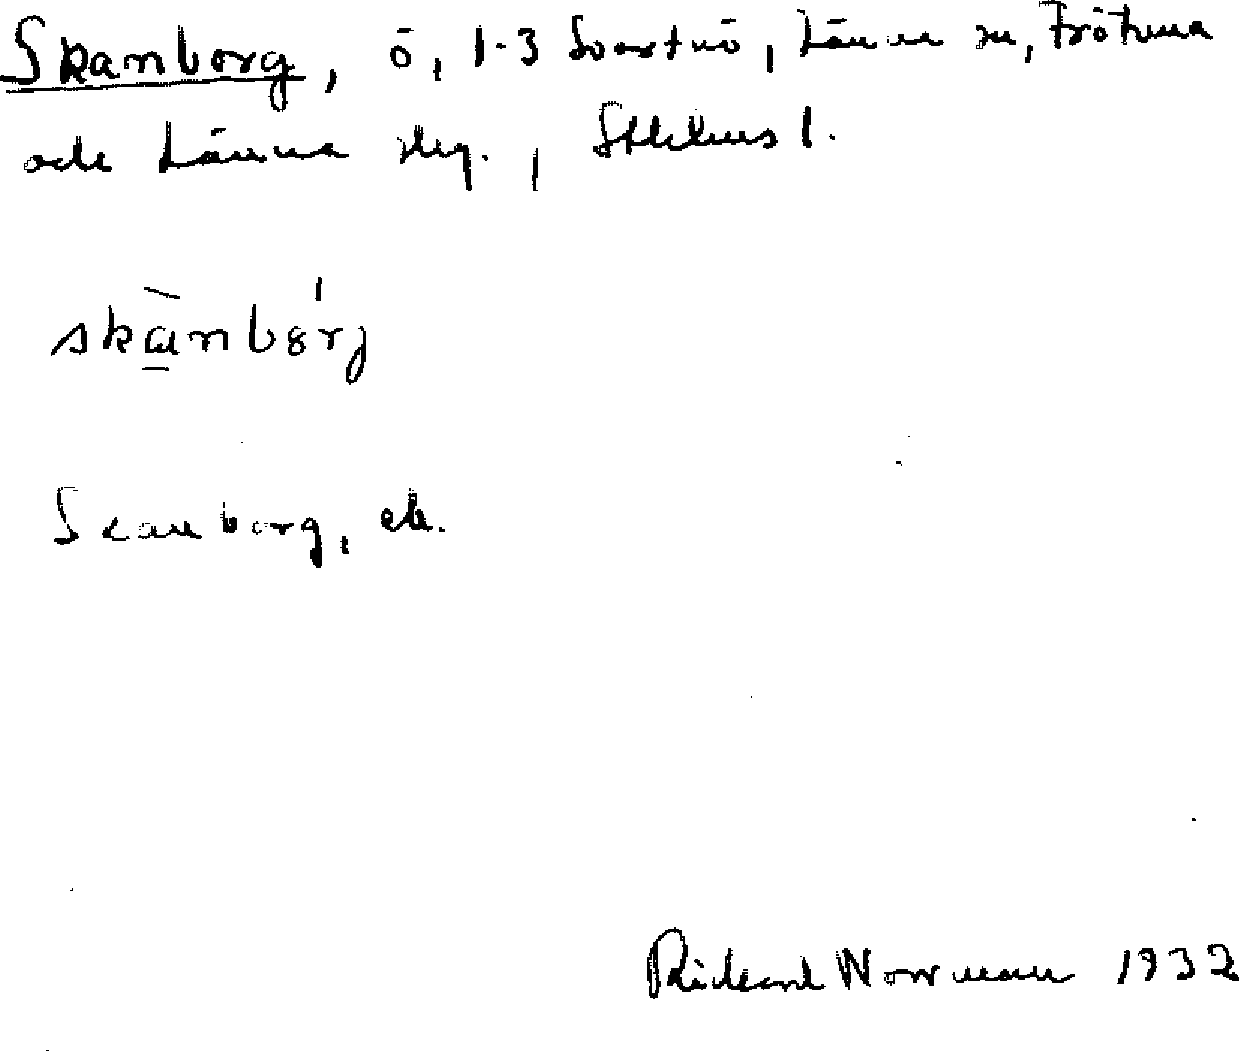 Skanborg, ö, 1-3 Svartnö, Länna sn, Frötuna
och Länna skg., Sthlms l.
skànbórj
Scanborg, ek.
Rickard Norrman 1932